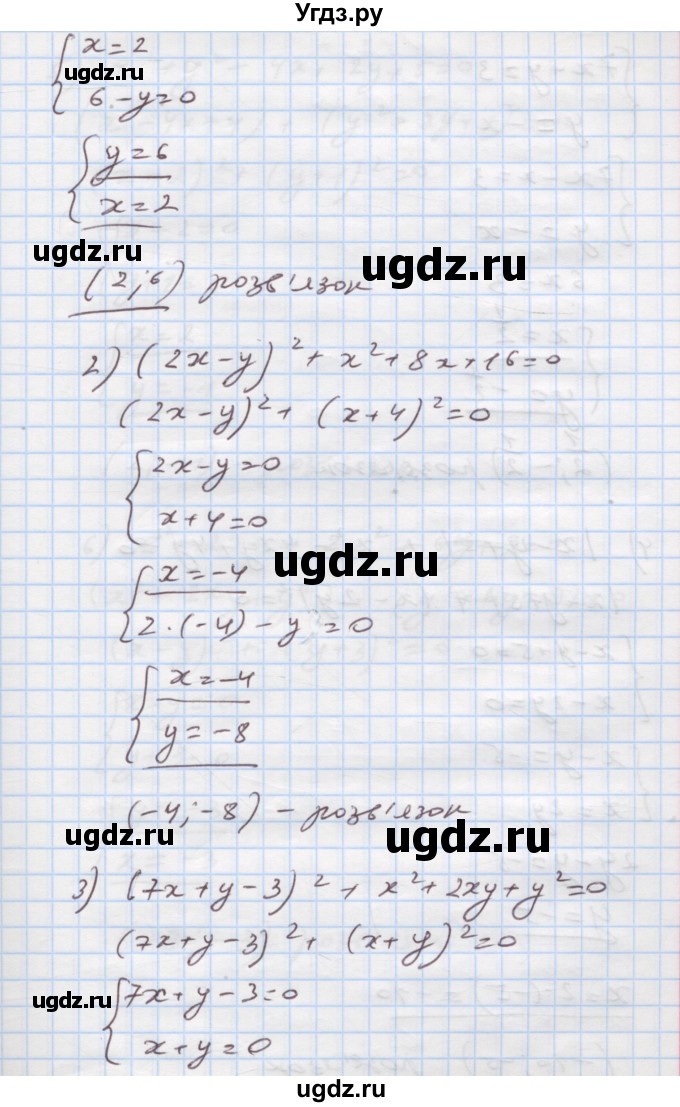 Угдз.ру
{ x = 2
ugdz.ru
6 - y = 0
{ y = 6
x = 2
ugdz.ru
ugdz.ru
(2; 6) розв'язок
2) (2x - y)² + x² + 8x + 16 = 0
(2x - y)² + (x + 4)² = 0
{ 2x - y = 0
x + 4 = 0
ugdz.ru
{ x = -4
2 · (-4) - y = 0
{ x = -4
y = -8
(-4; -8) - розв'язок
ugdz.ru
ugdz.ru
3) (7x + y - 3)² + x² + 2xy + y² = 0
(7x + y - 3)² + (x + y)² = 0
ugdz.ru
ugdz.ru
{ 7x + y - 3 = 0
x + y = 0
ugdz.ru